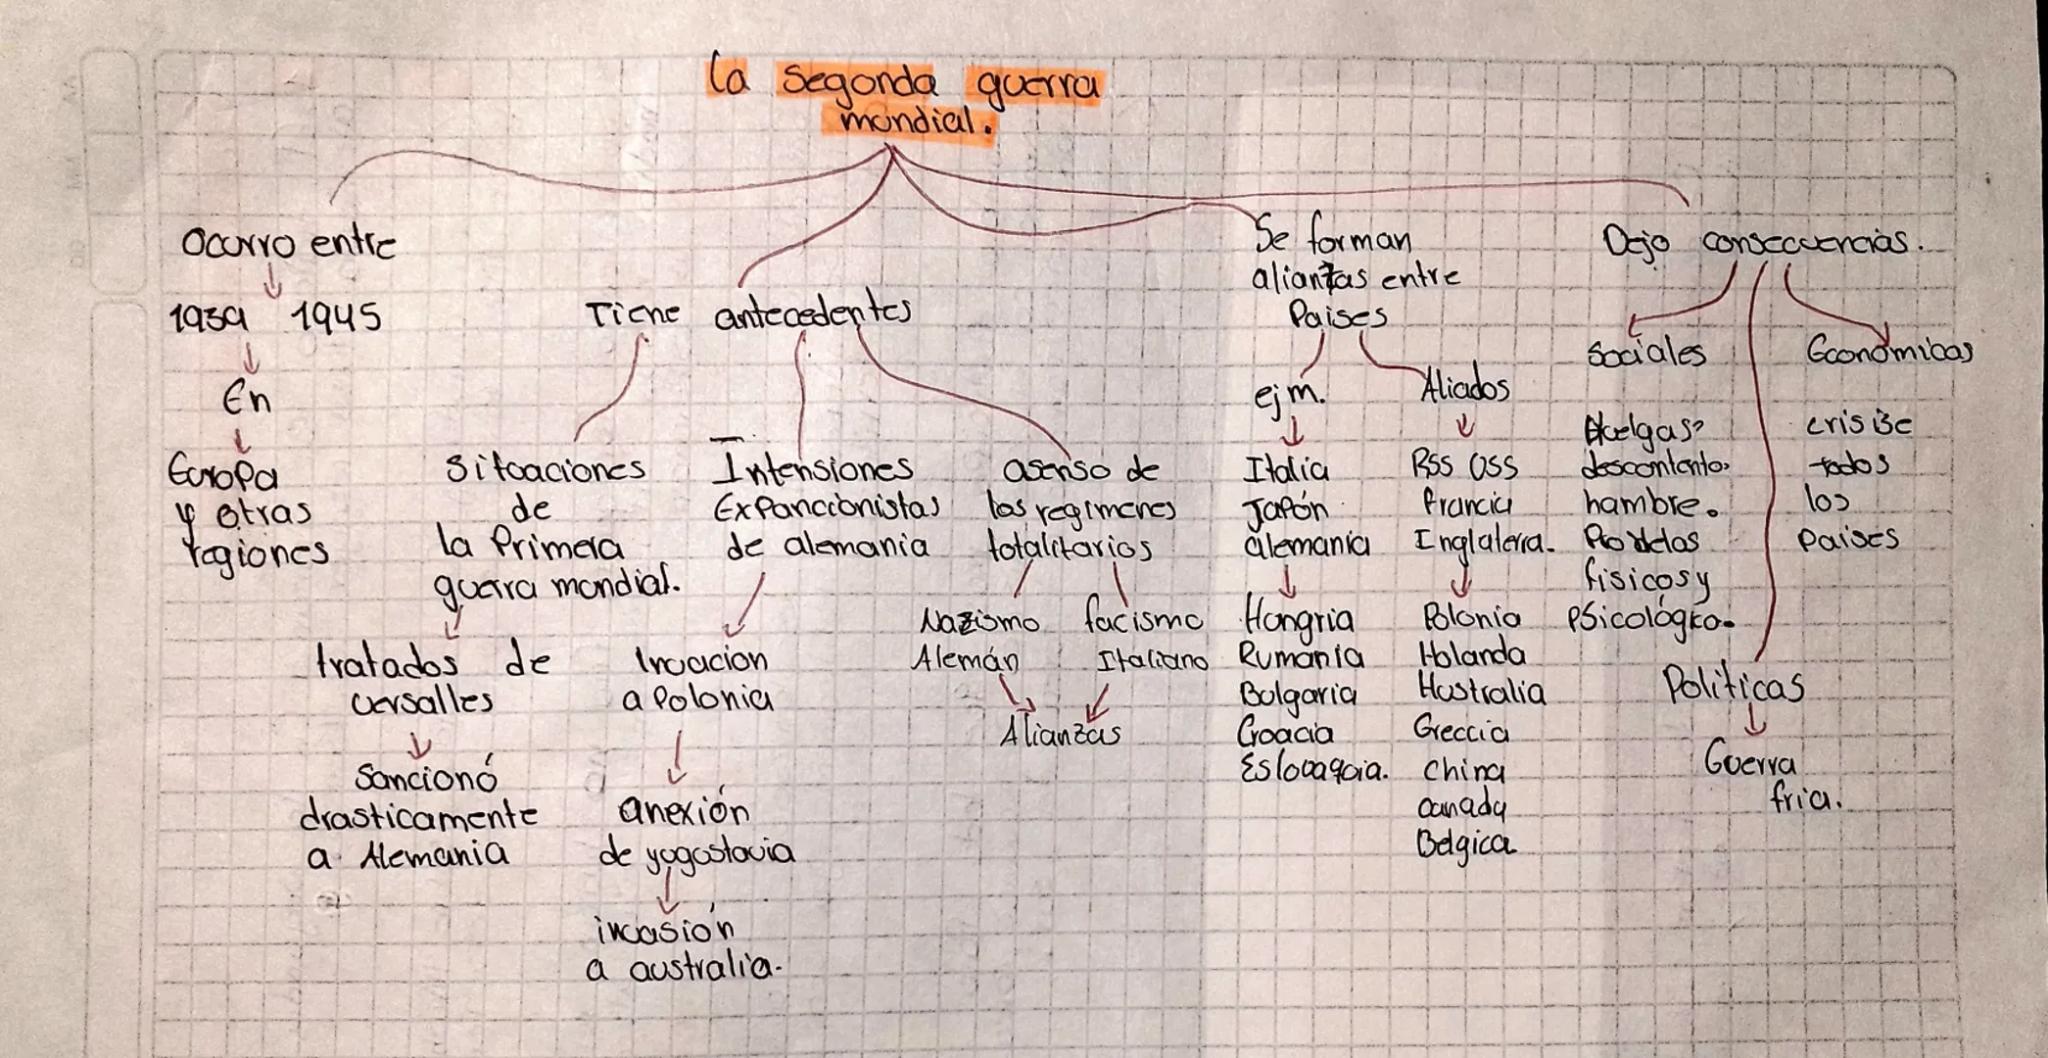 la segonda guerra
mondial.
Ocurro entre
1939 1945
En
Europa
y otras
regiones
Tiene antecedentes
Sitoaciones
de
la Primera
guerra mondial.
tratados de
versalles
Sancionó
drasticamente
a Alemania
Intensiones
Expancionistas
de alemania
Invacion
a Polonia
anexión
de yogoslavia
invasión
a australia.
asenso de
los regimenes
totalitarios
Nazismo
Alemán
facismo
Italiano
Alianzas
Se forman
alianzas entre
Paises
ejm.
Italia
Japón
alemania
Hongria
Rumania
Bolgaria
Croacia
Eslovaqoia.
Aliados
RSS OSS
francia
Inglaterra.
Polonia
Holanda
Hustralia
Greccia
china
canada
Belgica
Dejo consecuencias.
Sociales
Huelgas,
descontento,
hambre.
fisicos y
PSicológico.
Políticas
Guerra
fria.
Económicas
crisis de
todos
los
paises